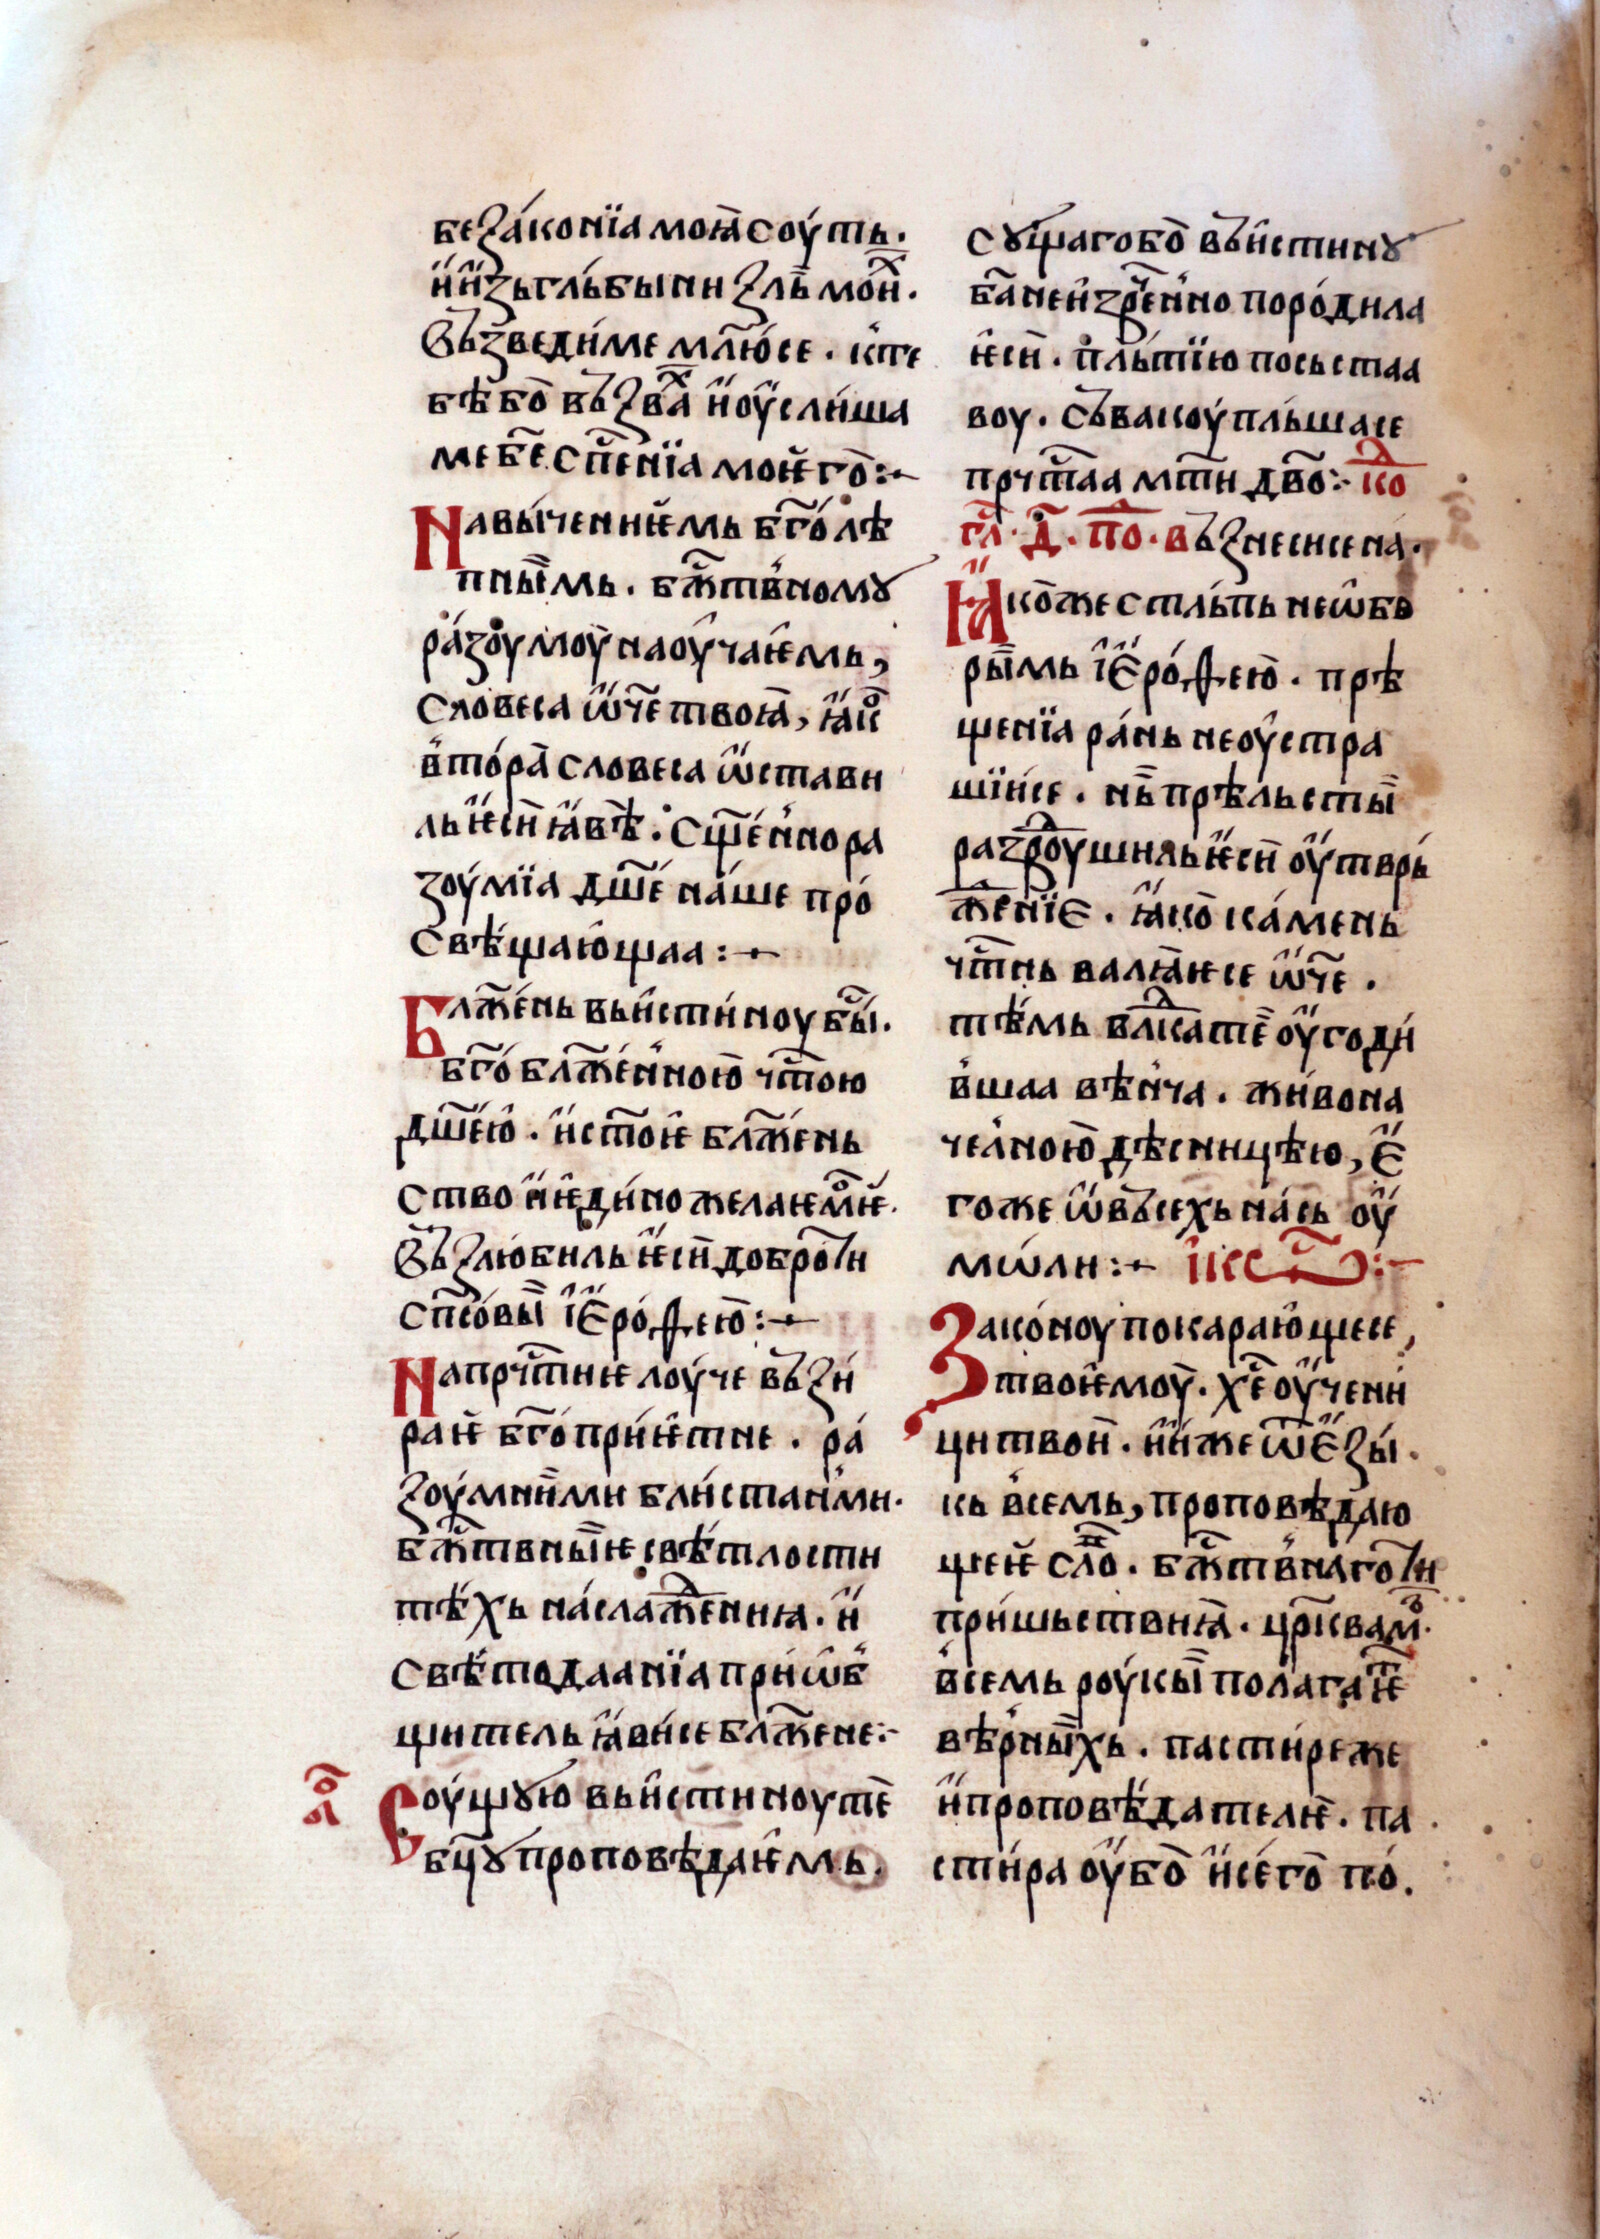 беꙁа́конїа моꙗ̀ соу́ть.
и҆и҆зьгль́быни ꙁль̀ мои̑ⷯ.
Въꙁведи́ме млю҃́се. кте
бѣ бо̀ въꙁва̀ⷯ и҆оу҆сли́ша
ме бе҃. сп҃се́нїа моѥго̀:⁓
Навы́ченнѥмь бг҃о́лѣ
пны̏мь. бж҃ⷭтв҆номꙋ
ра́зоумоу҆ наоу҆ча́ѥмь,
словеса ѿ҆че҃ твоꙗ̀, ꙗ҆кⷪ
в҆то́ра̀ словеса ѡ҆стави
ль ѥ҆сѝ ꙗ҆вѣ̀. сщ҃е́н҆нора
зоу́мїа дш҃е́ на́ше про́
свѣ́щаю҆щаа:⁓
Блж҃е́нь вьи҆сти́ноу бы́ⷭ.
бг҃о́блж҃е́н҆ною̀ чⷭ҇тою
дш҃е́ю҆. и҆сто҃ѥ блж҃е́нь
ство и҆ѥ҆ди́но желаѥмⷪѥ.
Въꙁлюбиль ѥ҆сѝ доброти
сп҃со́вы̏ і҆Є҆ро́ѳею̀:⁓
Напрчⷭ҇тиѥ лоу́че въꙁи́
раѥ бг҃о́при́ѥ҆тне. ра́
ꙁоу́мни̏ми бли́станьми.
бж҃ⷭтвны̏ѥ свѣ́тлости
тѣ́хь на́слаж҃ениꙗ. и҆
свѣ́тодаанїа при́ѡ҆б
щитель ꙗ҆ви́се блж҃ене:⁓
бⷪ҇ Соу́щꙋю вьи҆стиноу те̏
бц҃ꙋ проповѣ́даѥ҆мь.
сꙋщаго бо̀ въи҆стинꙋ
ба҃ неи҆зре́ⷱн҆но поро́дила
ѥ҆сѝ. пль́тїю посьстаа
воу. съвакоу́пльшаⷭе
прчⷭ҇таа мт҃и дв҃о:⁓ ко̑ⷣ
гл҃. д҃. по̑ⷣ. въꙁнесисена́.
Ꙗ҆ко̀же стль́пь неѡ҆бо
ры̏мь і҆Є҆ро́ѳею̀. прѣ
щенїа ра́нь неоу҆стра
ши́се. нь̏ прѣльсты̏
разроⷣушиль ѥ҆сѝ оу҆тврь́
ж҃ⷣе́нїЄ. ꙗ҆ко̀ ка́мень
чⷭ҇тнь валꙗ̀ѥсе ѿ҆че҃.
тѣ́мь влⷣ҇кате̏ оу҆годи́
в҆шаа вѣ́н҆ча. жи́вона
чел҆ною̀ дѣсницѣю, Є҆
гоже ѡ҆въсехь на́сь оу҆
мѡ́ли:⁓ ікоⷭ҇:⁓
Зако́ноу покараю҆щесе,
твоѥ҆моу̀. хе҃ оу҆чени́
ци твои̏. и҆и҆же ѿЄ҆ꙁы́.
кь в҆семь, проповѣ́даю
щеѥ сло̏ⷡ. бж҃ⷭтв҆наго ти
при́шьствиꙗ̀. цр҃квамⷡ.
в҆семь роу́кы̏ пола́гаⷯѥ
вѣ́р҆ны̏хь. пасти́реже
и҆проповѣ́дателѥ̀. па
сти́ра оу҆бо̀ и҆се́го̀ по́.